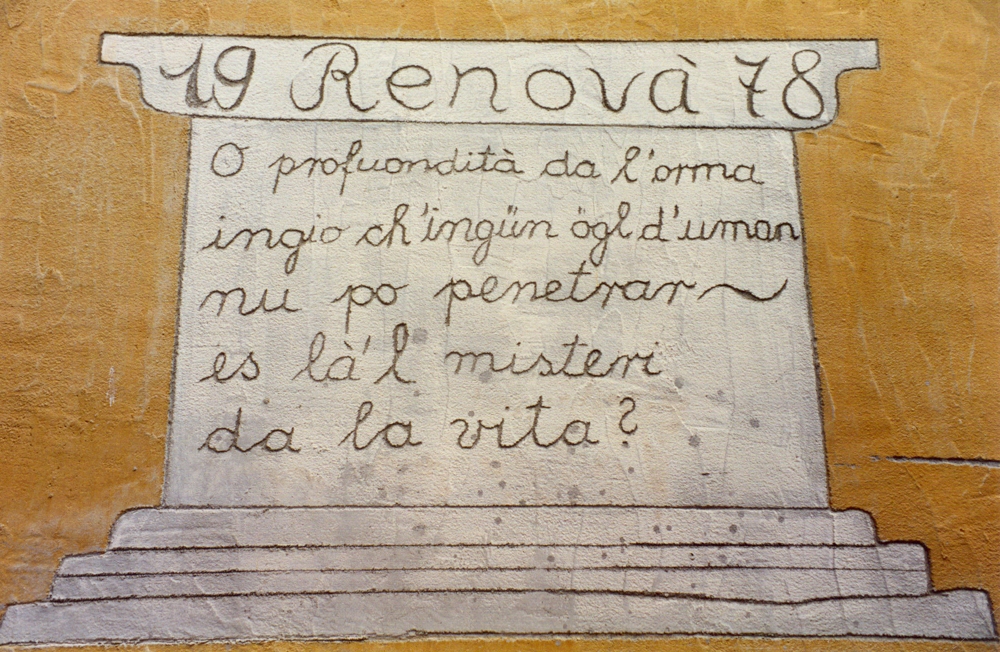 19 Renovà 78
O profuondità da l'orma
ingio ch'ingün ögl d'uman
nu po penetrar~
es là'l misteri
da la vita?